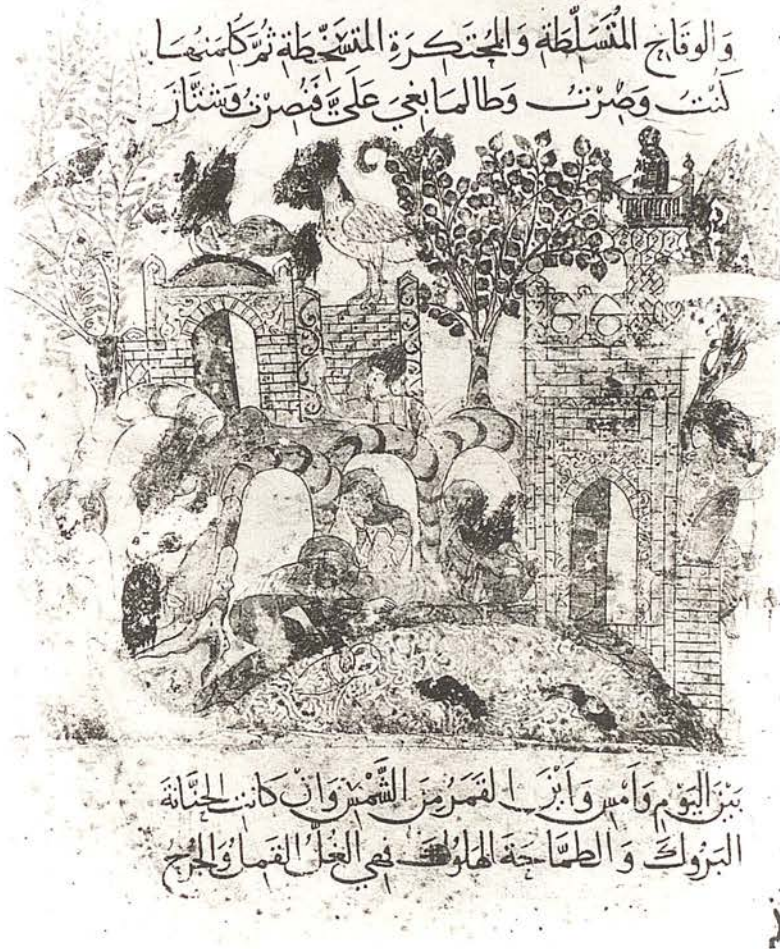 وَالوقَاحِ المُتَسَلِّطَةِ وَالمُحْتَكِرَةِ المتَسَخِّطَةِ ثُمَّ كَلِمَتهَا
كُنْتُ وَصِرْتُ وَطالمَا بغي عَلَيَّ فَنُصِرْتُ وَشتَّانَ
بَيْنَ اليَوْمِ وَأمْسِ وَأيْنَ القَمَرُ مِنَ الشَّمْسِ وَان كانت الحنَّانَةَ
البَرُوكَ وَالطمَّاحَةَ الهَلُوكَ فهي الغُلُّ القَمِلُ وَالجُرْحُ